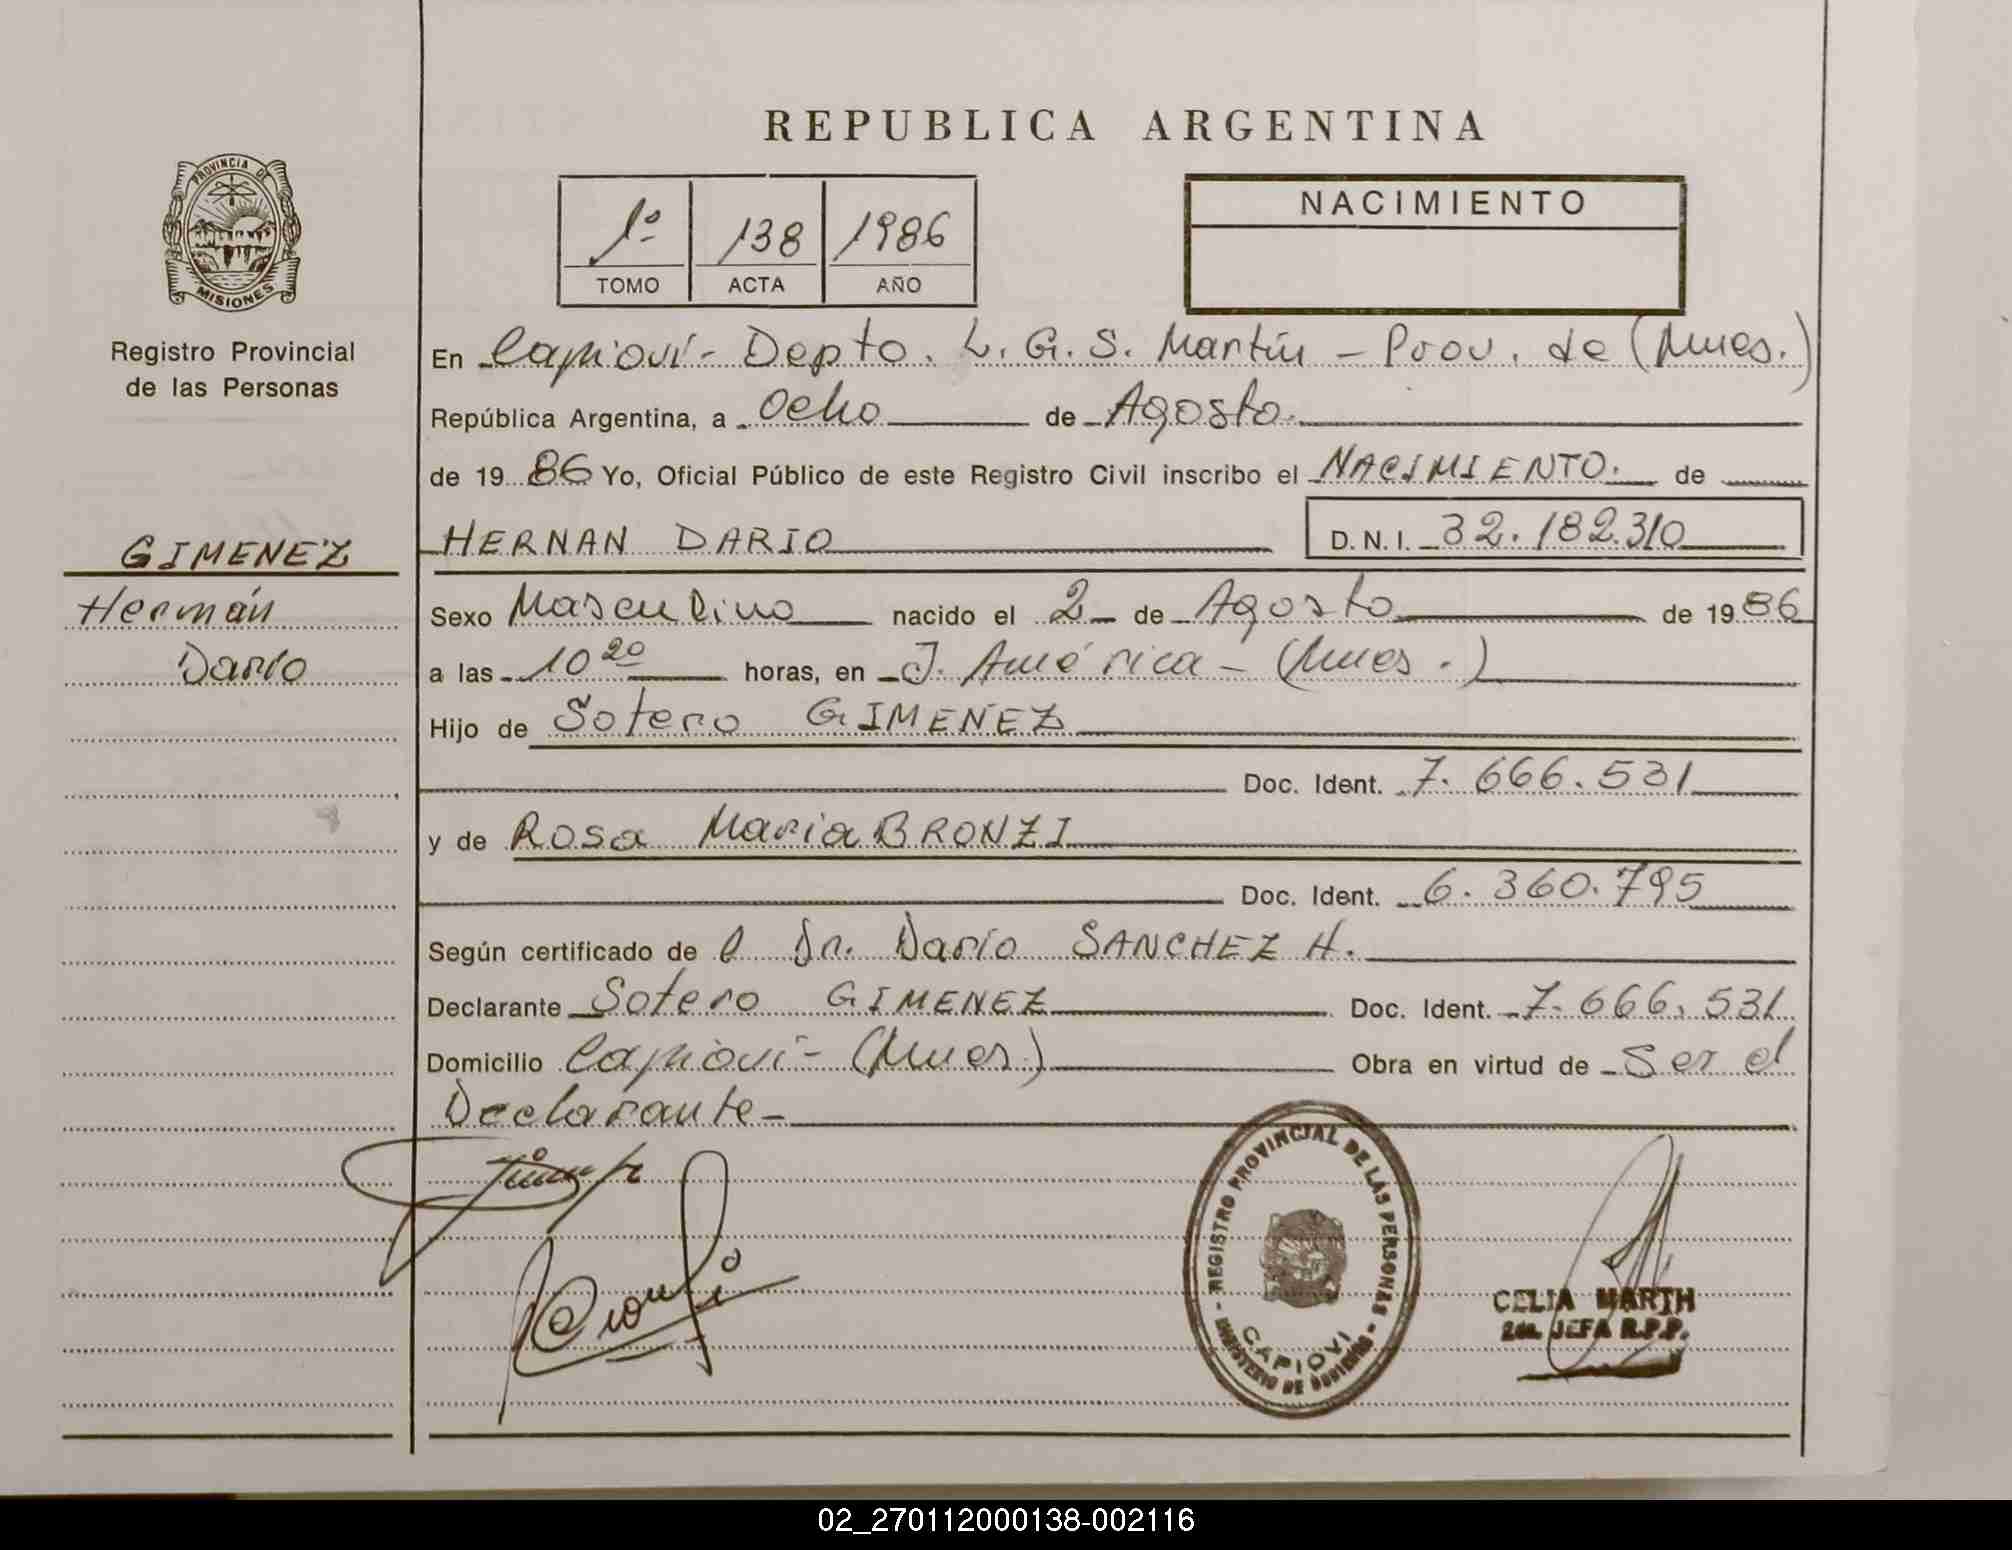 REPUBLICA ARGENTINA
PROVINCIA DE
MISIONES
Registro Provincial
de las Personas
1º 138 1986
TOMO ACTA AÑO
NACIMIENTO
En Capioví - Depto. L. G. S. Martín - Prov. de (Mnes.)
República Argentina, a Ocho de Agosto.
de 19 86 Yo, Oficial Público de este Registro Civil inscribo el NACIMIENTO. de
GIMENEZ
HERNAN DARIO D.N.I. 32.182.310
Hernán
Darío
Sexo Masculino nacido el 2 de Agosto de 19 86
a las 10 20 horas, en J. América - (Mnes.)
Hijo de Sotero GIMENEZ
Doc. Ident. 7.666.531
y de Rosa Maria BRONZI
Doc. Ident. 6.360.795
Según certificado de l Dr. Darío SANCHEZ H.
Declarante Sotero GIMENEZ Doc. Ident. 7.666.531
Domicilio Capioví - (Mnes.) Obra en virtud de Ser el
Declarante -
REGISTRO PROVINCIAL DE LAS PERSONAS
MINISTERIO DE GOBIERNO
CAPIOVI
CELIA MARTH
2da. JEFA R.P.P.
02_270112000138-002116